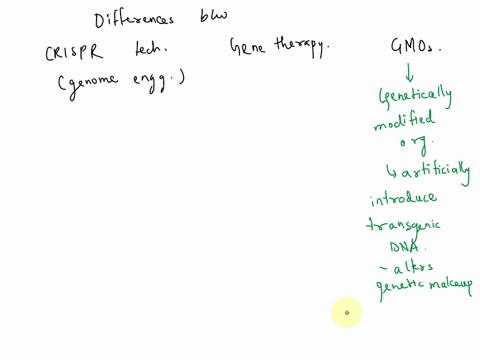 Differences b/w
CRISPR tech. Gene therapy. GMOs.
(genome engg.)
Genetically
modified
org.
↳ artificially
introduce
transgenic
DNA.
- alters
genetic makeup